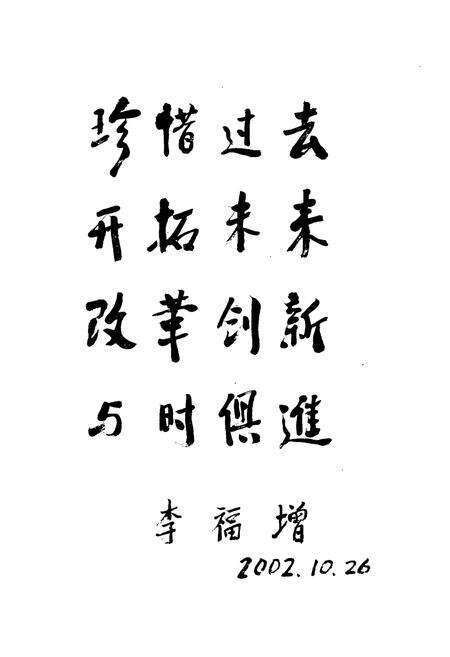 珍惜过去
开拓未来
改革创新
与时俱進
李福增
2002.10.26